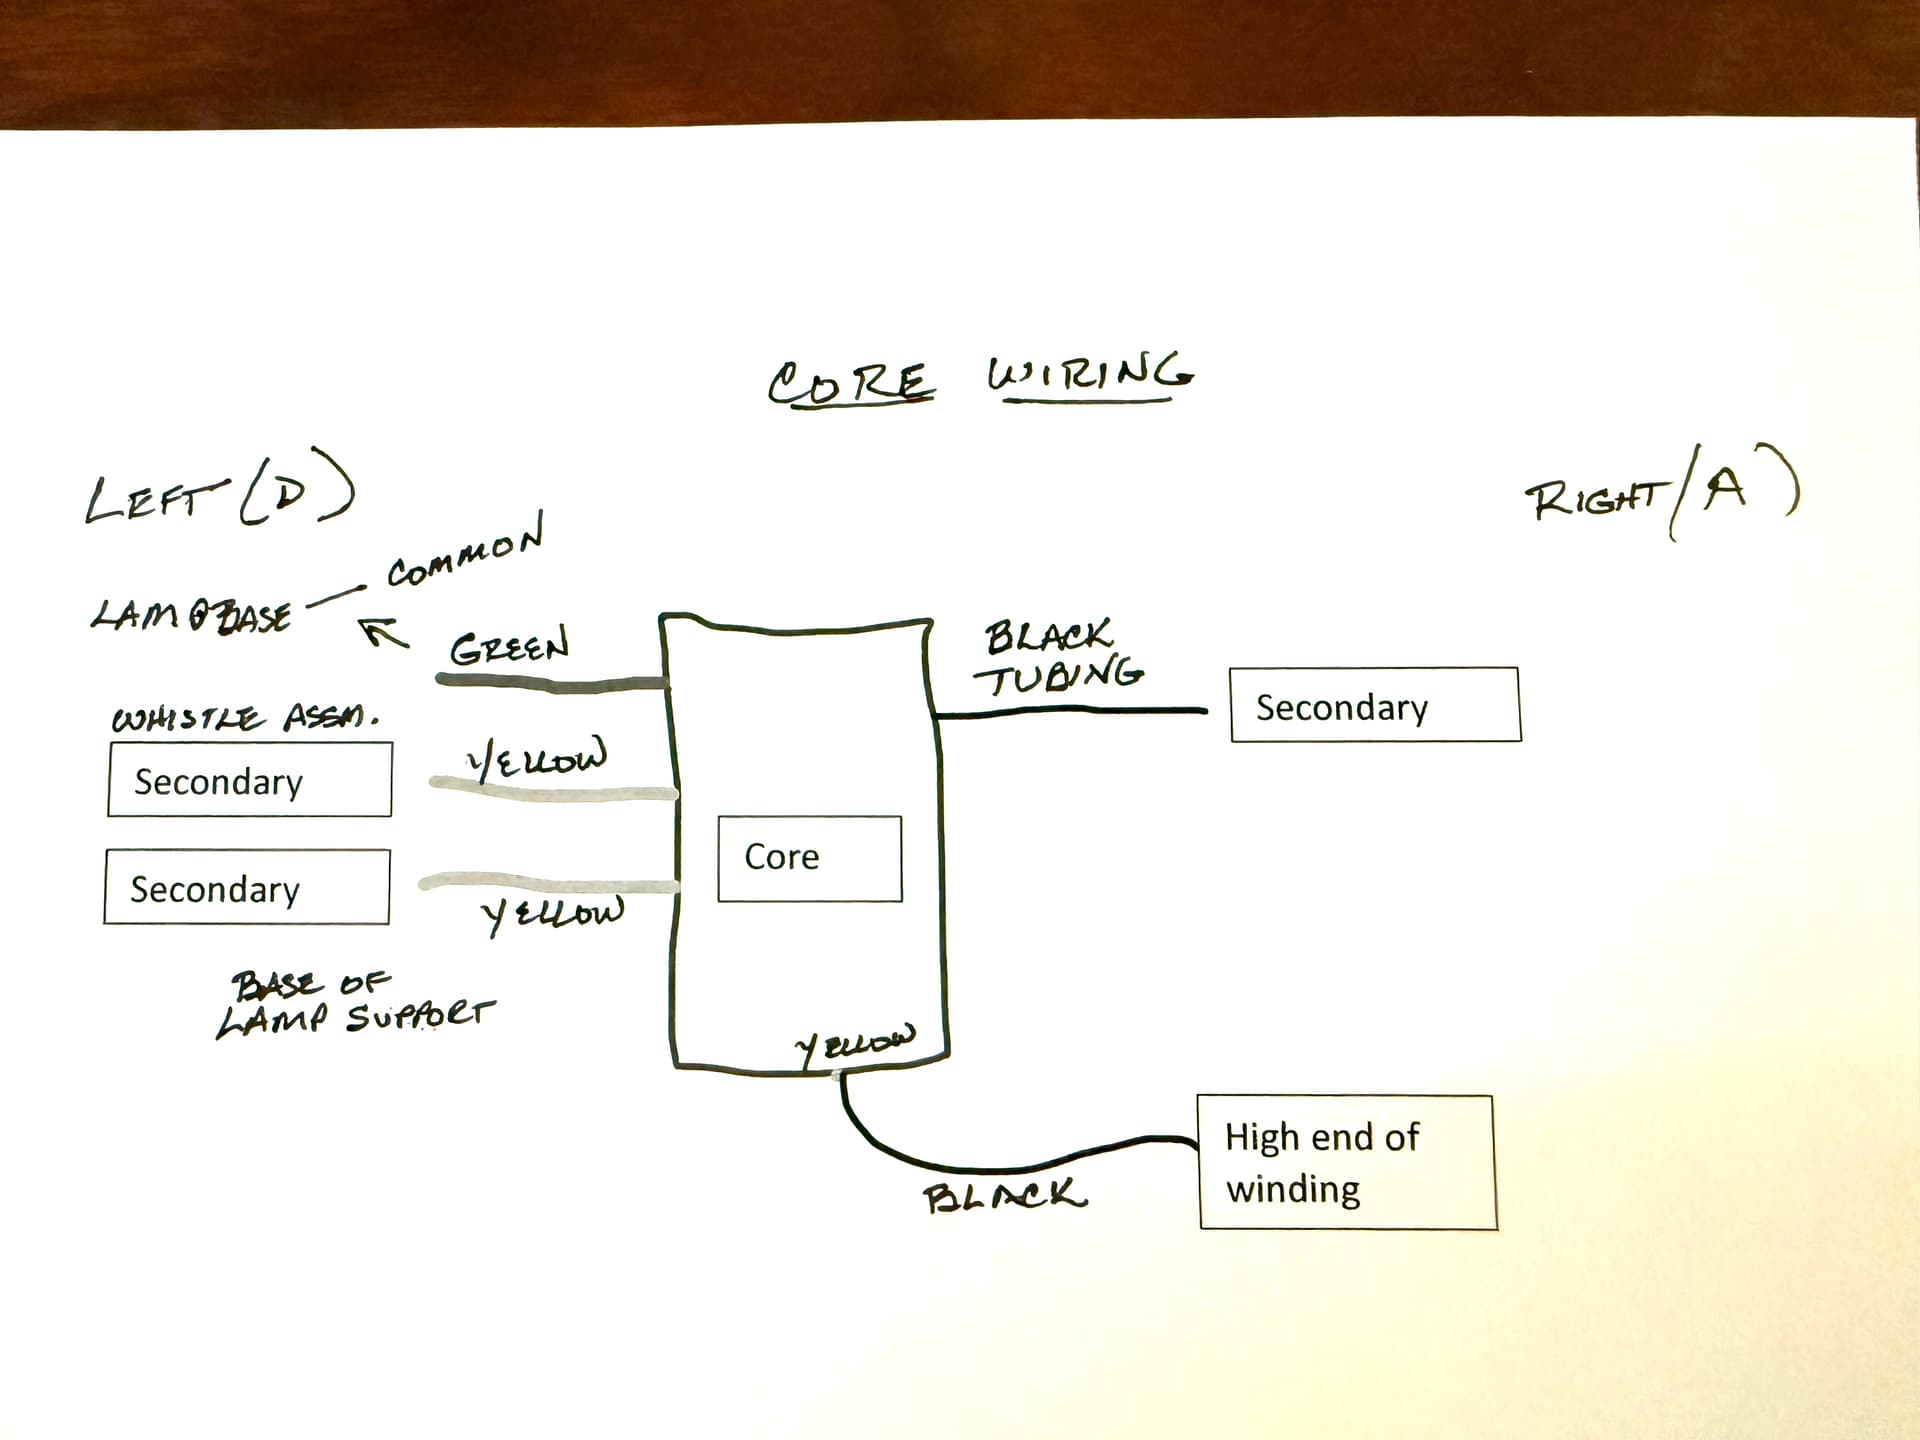 CORE WIRING
LEFT (D)
RIGHT (A)
COMMON
LAMP BASE
GREEN
BLACK
TUBING
Secondary
WHISTLE ASSM.
YELLOW
Secondary
Core
Secondary
YELLOW
BASE OF
LAMP SUPPORT
YELLOW
High end of
winding
BLACK